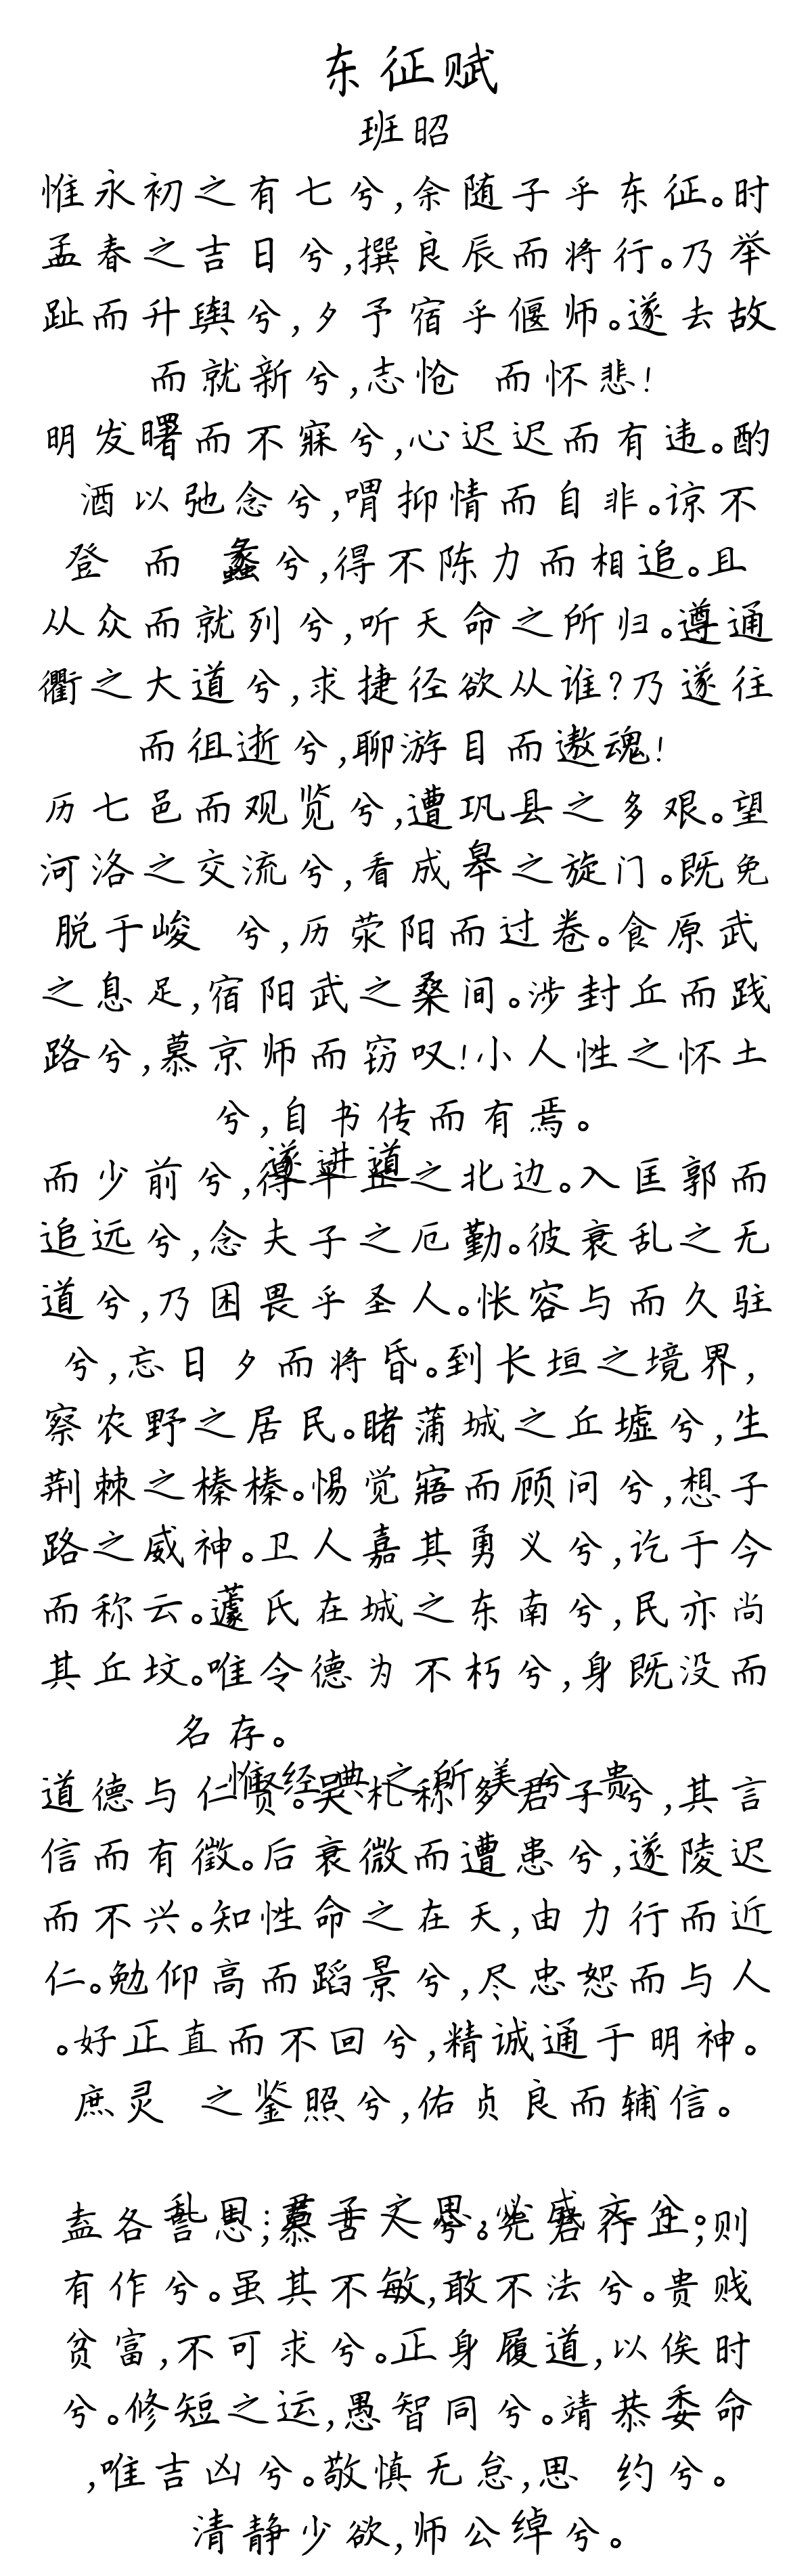 东征赋
班昭
惟永初之有七兮,余随子乎东征。时
孟春之吉日兮,撰良辰而将行。乃举
趾而升舆兮,夕予宿乎偃师。遂去故
而就新兮,志怆 而怀悲!
明发曙而不寐兮,心迟迟而有违。酌
酒以弛念兮,喟抑情而自非。谅不
登 而 蠡兮,得不陈力而相追。且
从众而就列兮,听天命之所归。遵通
衢之大道兮,求捷径欲从谁?乃遂往
而徂逝兮,聊游目而遨魂!
历七邑而观览兮,遭巩县之多艰。望
河洛之交流兮,看成皋之旋门。既免
脱于峻 兮,历荥阳而过卷。食原武
之息足,宿阳武之桑间。涉封丘而践
路兮,慕京师而窃叹!小人性之怀土
兮,自书传而有焉。
遂进道
而少前兮,得平丘之北边。入匡郭而
追远兮,念夫子之厄勤。彼衰乱之无
道兮,乃困畏乎圣人。怅容与而久驻
兮,忘日夕而将昏。到长垣之境界,
察农野之居民。睹蒲城之丘墟兮,生
荆棘之榛榛。惕觉寤而顾问兮,想子
路之威神。卫人嘉其勇义兮,讫于今
而称云。蘧氏在城之东南兮,民亦尚
其丘坟。唯令德为不朽兮,身既没而
名存。
惟经典之所美兮,贵
道德与仁贤。吴札称多君子兮,其言
信而有徵。后衰微而遭患兮,遂陵迟
而不兴。知性命之在天,由力行而近
仁。勉仰高而蹈景兮,尽忠恕而与人
。好正直而不回兮,精诚通于明神。
庶灵 之鉴照兮,佑贞良而辅信。
盍各言
有作兮。虽其不敏,敢不法兮。贵贱
贫富,不可求兮。正身履道,以俟时
兮。修短之运,愚智同兮。靖恭委命
,唯吉凶兮。敬慎无怠,思 约兮。
清静少欲,师公绰兮。